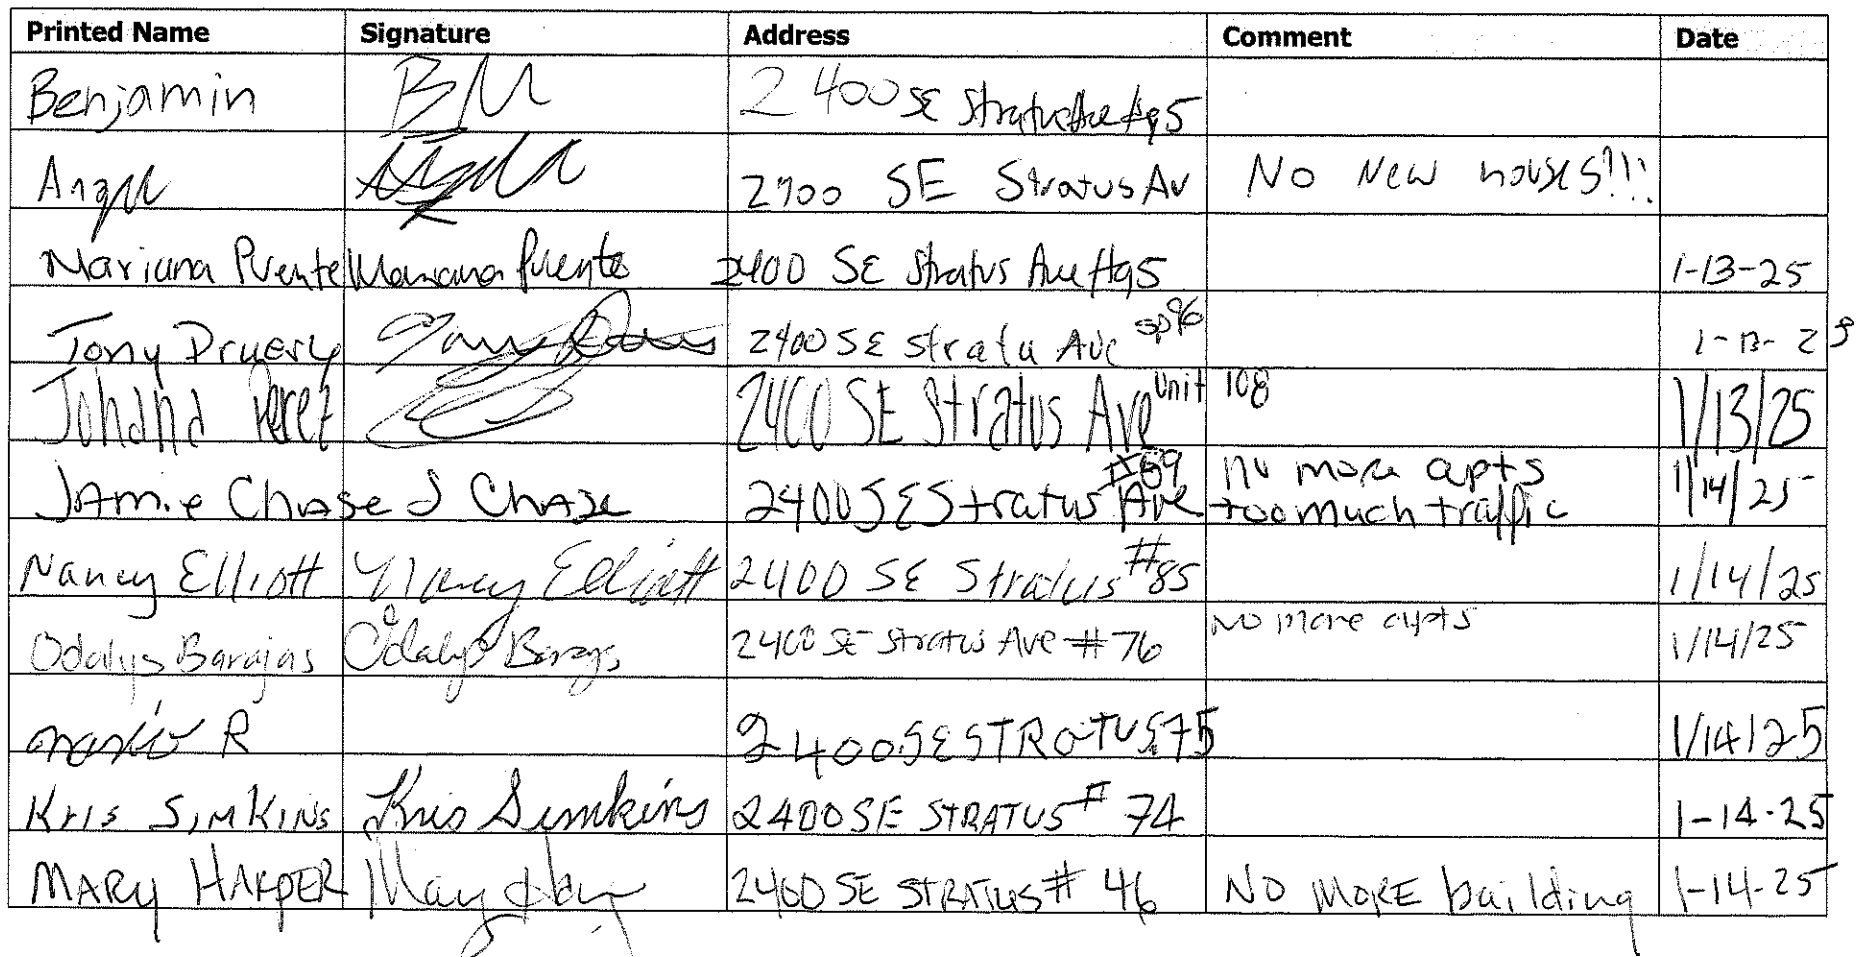 Printed Name Signature Address Comment Date
Benjamin BM 2400 SE Stratus Ave #95
Angel 2400 SE Stratus Av No New houses!!!
Mariana Puente Mariana Puente 2400 SE Stratus Ave #95 1-13-25
Tony Druery 2400 SE Stratu Ave sp96 1-13-25
Johana Perez 2400 SE Stratus Ave Unit 108 1/13/25
Jamie Chase J Chase 2400 SE Stratus Ave #69 no more apts too much traffic 1/14/25
Nancy Elliott Nancy Elliott 2400 SE Stratus #85 1/14/25
Odalys Barajas Odalys Barajas 2400 SE Stratus Ave #76 No more apts 1/14/25
R 2400 SE STRATUS 75 1/14/25
KRIS SIMKINS Kris Simkins 2400 SE STRATUS # 74 1-14-25
MARY HARPER 2400 SE STRATUS # 46 NO MORE building 1-14-25